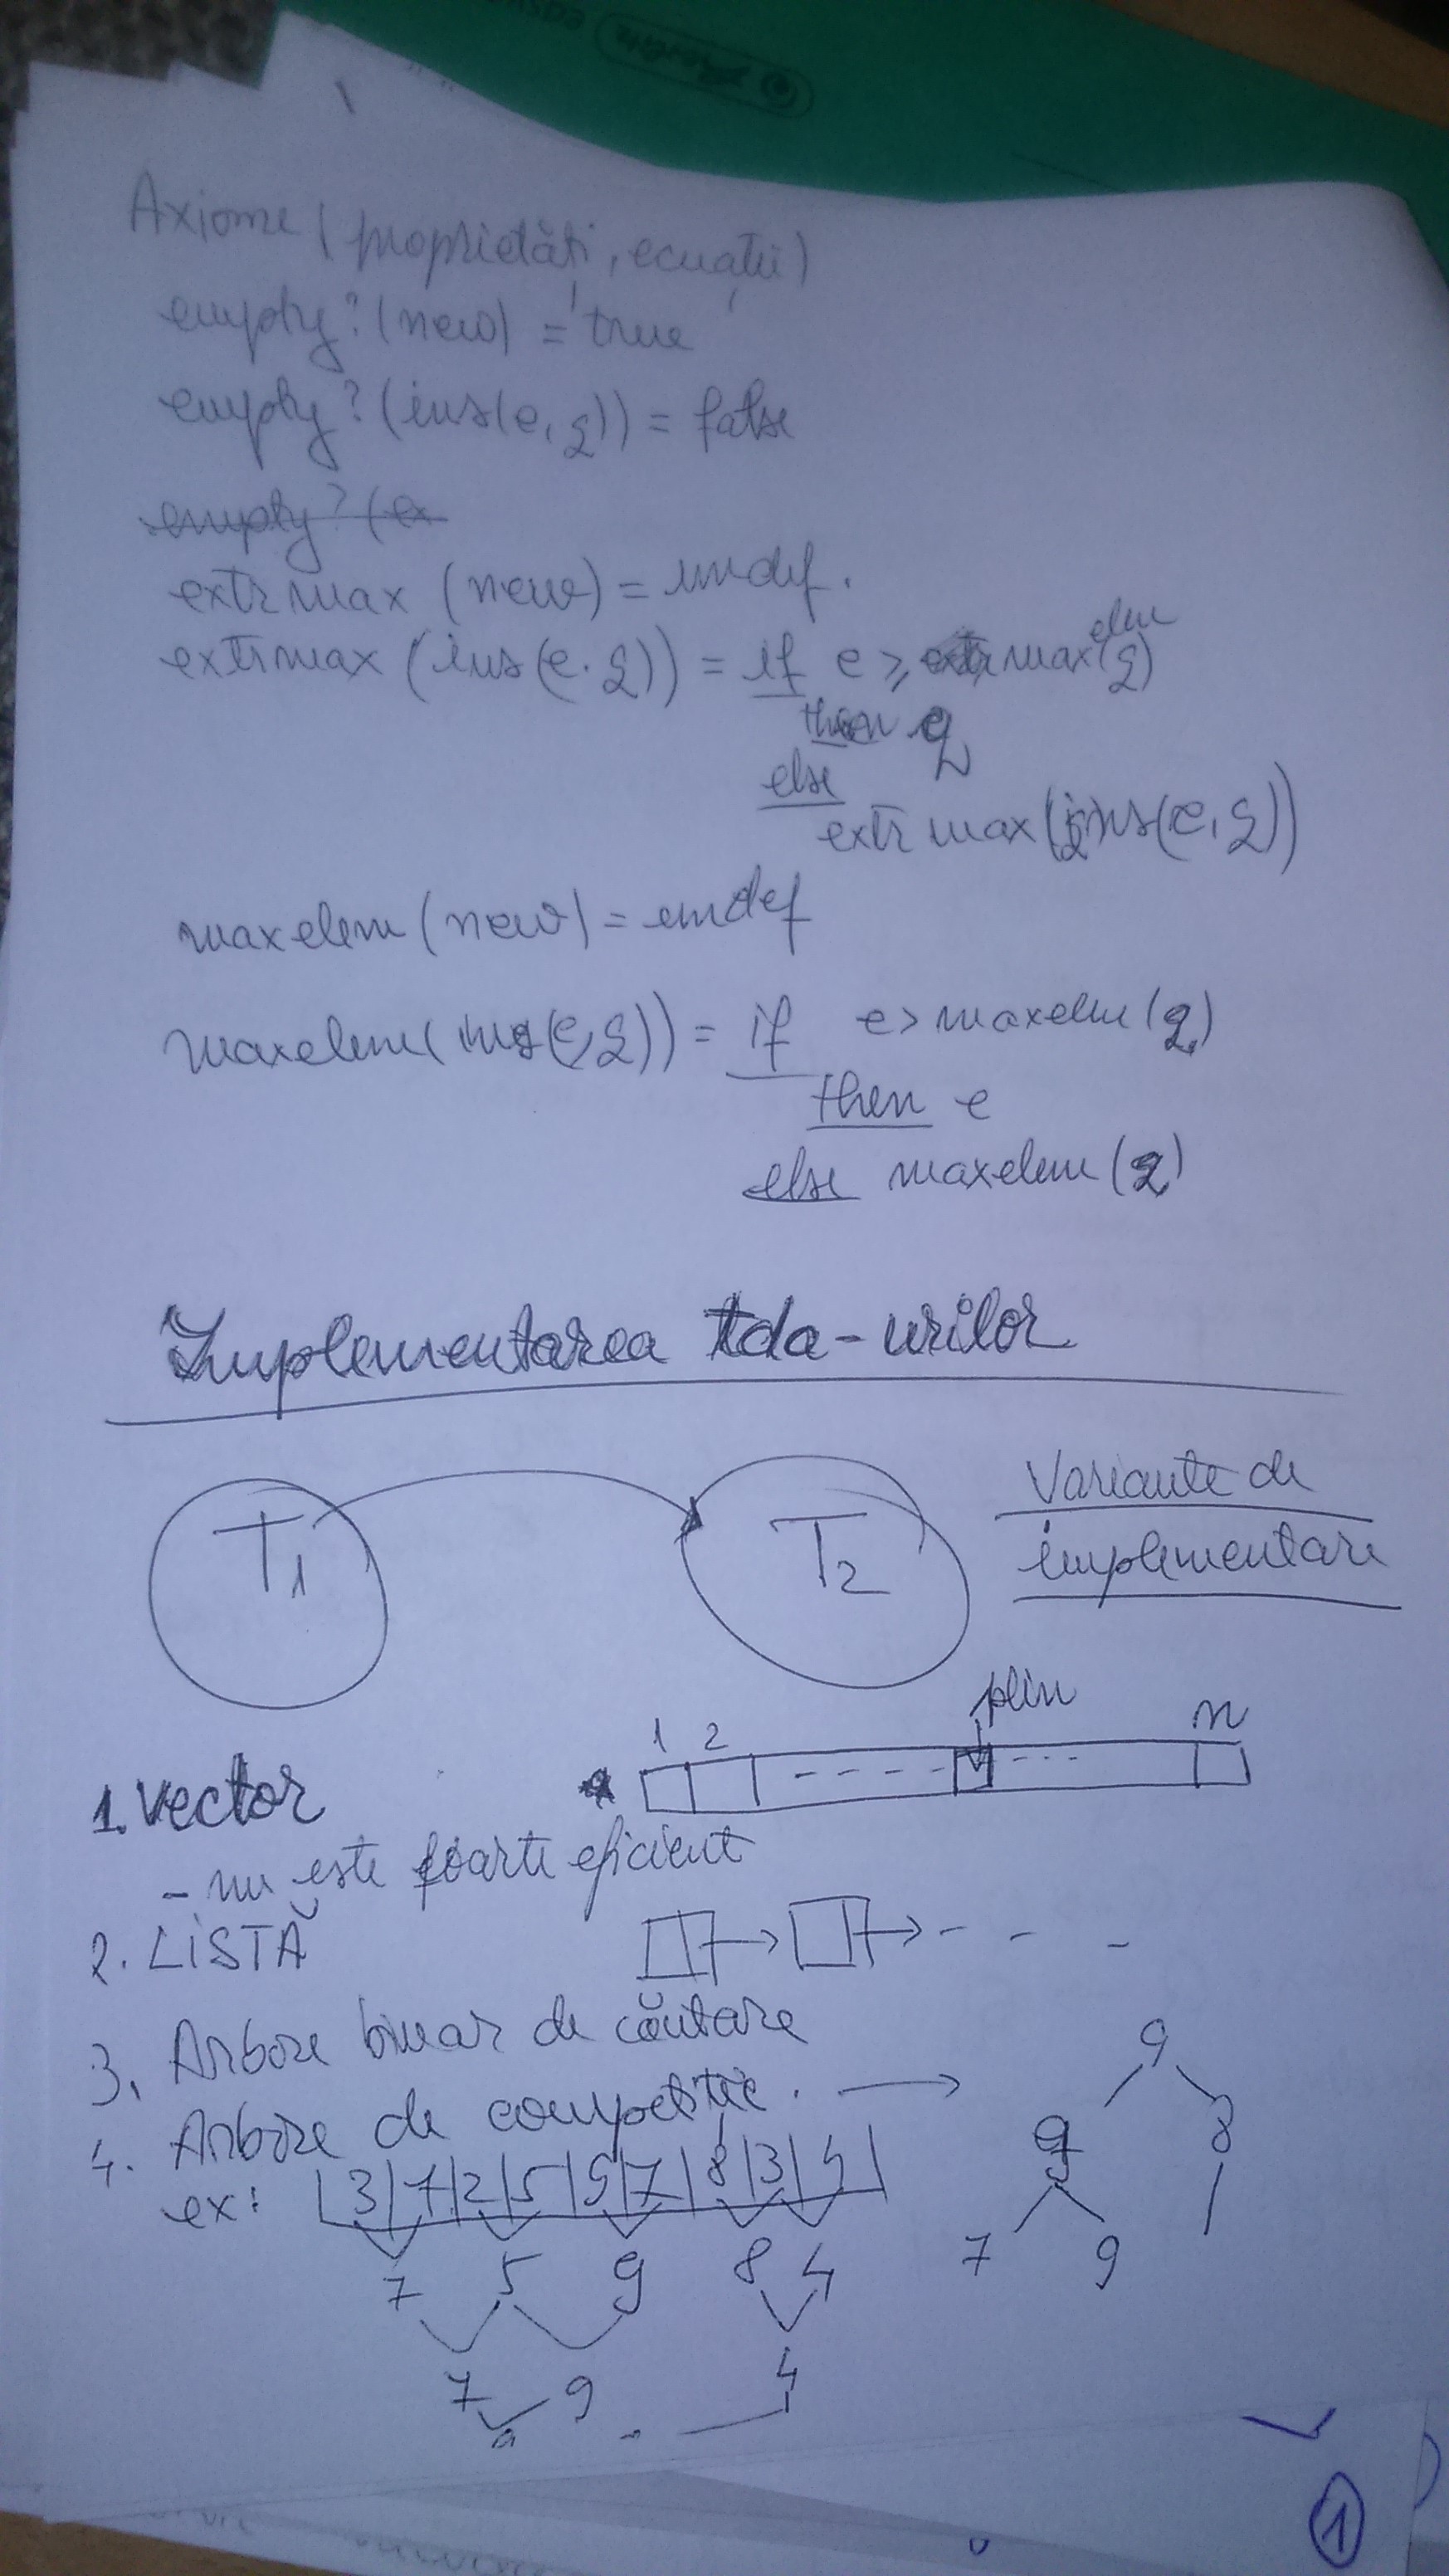 Axiome (proprietăți, ecuații)
empty? (new) = true
empty? (ins(e, q)) = false
empty? (ex
extrmax (new) = undef.
extrmax (ins(e. q)) = if e ≥ maxelem(q)
then q
else
extrmax(ins(e, q))
maxelem(new) = undef
maxelem(ins(e, q)) = if e > maxelem(q)
then e
else maxelem(q)
Implementarea tda-urilor
T1 T2 Variante de
implementare
plin
1 2 n
1. Vector
- nu este foarte eficient
2. LISTĂ
3. Arbore binar de căutare
9
4. Arbore de competiție.
9 8
ex: 3 7 2 5 9 7 8 3 4
7 9
7 5 9 8 4
7 9 4
9
1